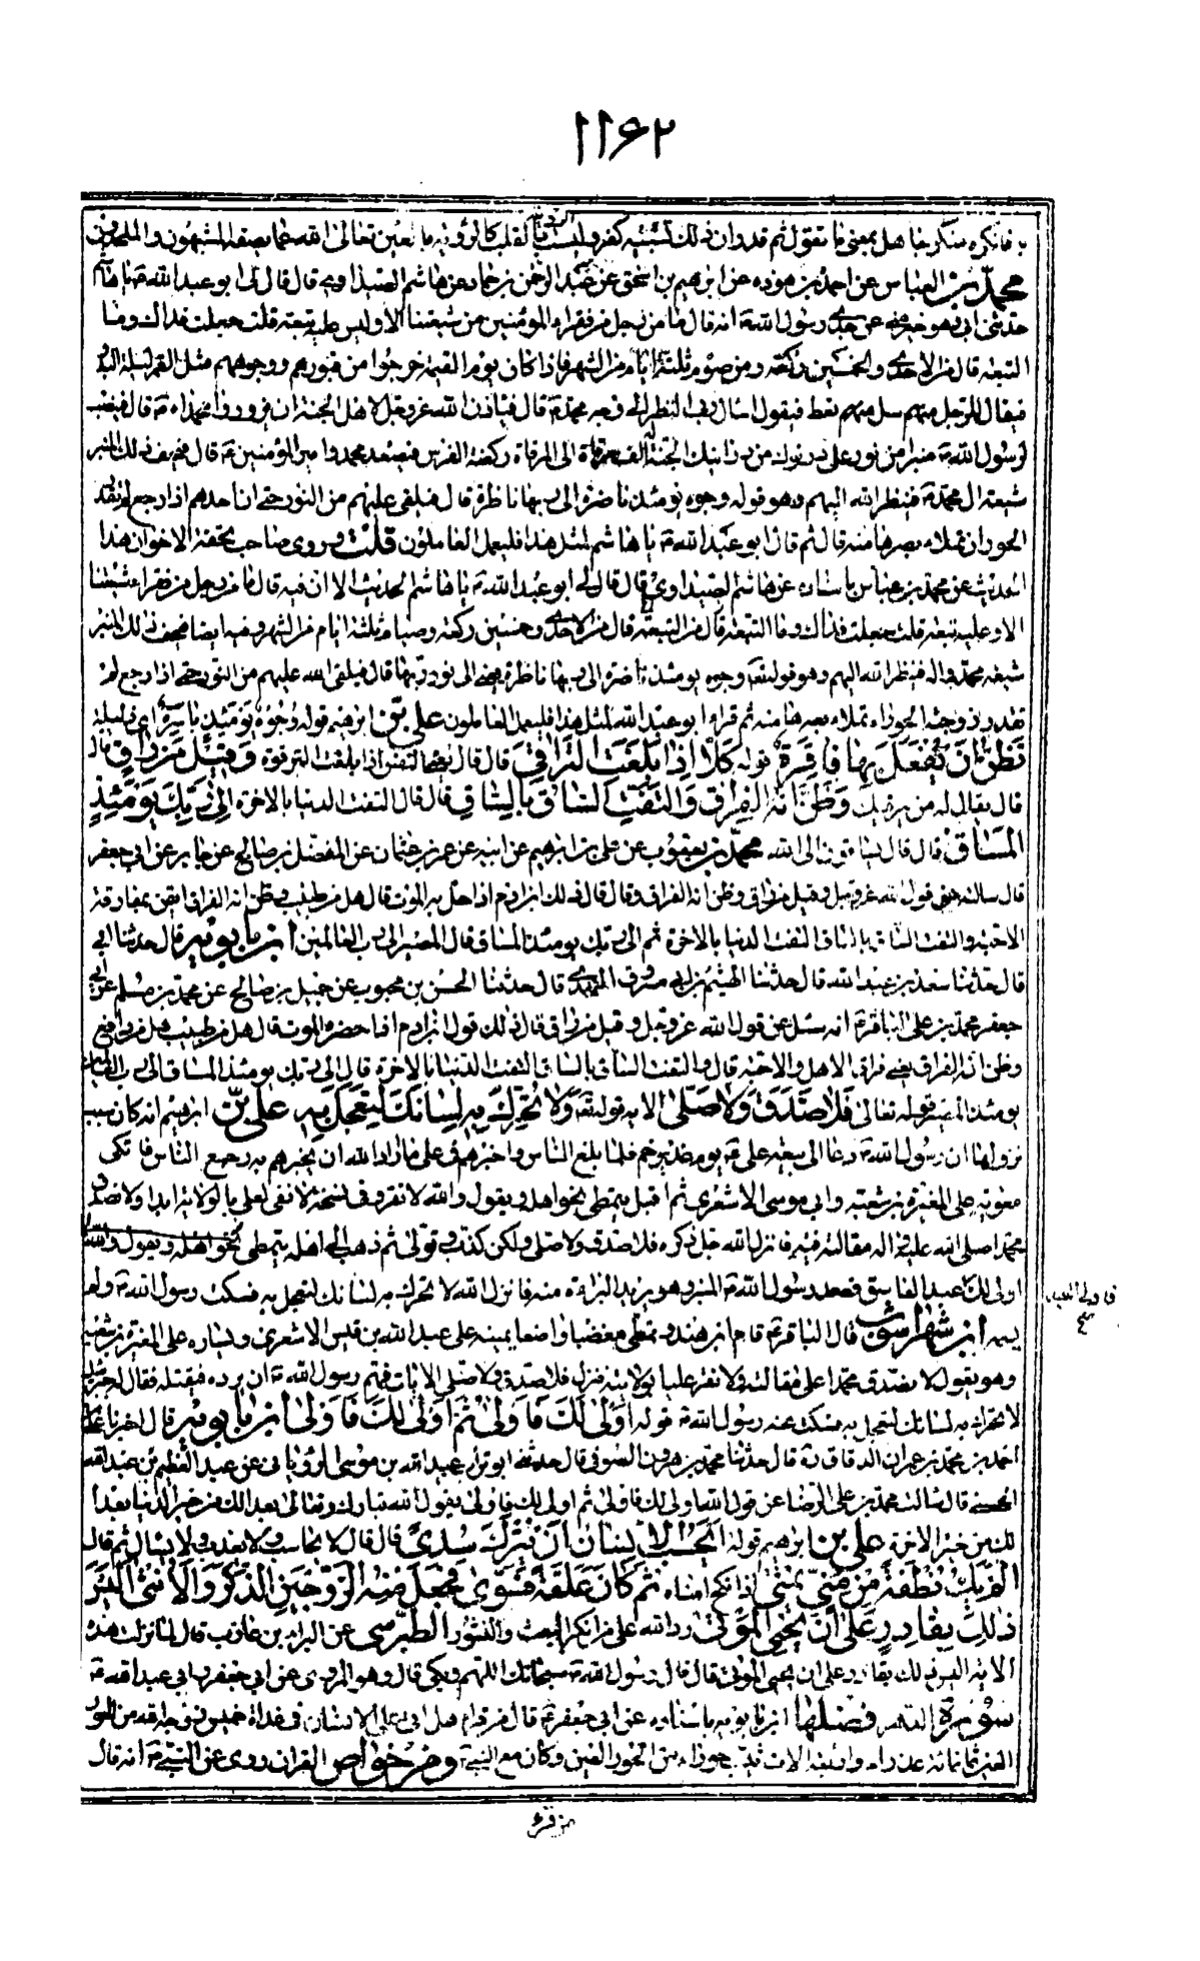 ١١۶٢
به فانكره منكر جاهل بمعنى ما تقول ثم قدر ان ذلك تشبيه كفر وليست الرؤية بالقلب كالرؤية بالعين تعالى الله عما يصفه المشبهون والملحدون
محمد بن العباس عن احمد بن هوذه عن ابرهيم بن اسحق عن عبد الرحمن بن حماد عن هاشم الصيداوى قال قال لى ابو عبد الله ع يا هاشم
حدثنى ابى وهو خير منى عن جدى رسول الله ص انه قال ما من رجل من فقراء المؤمنين من شيعتنا الا وليس عليه تبعة قلت جعلت فداك وما
التبعة قال من الاحدى والخمسين ركعة ومن صوم ثلثة ايام من الشهر فاذا كان يوم القيمة خرجوا من قبورهم ووجوههم مثل القمر ليلة البدر
فيقال للرجل منهم سل تعط فيقول اسال ربى النظر الى وجه محمد ص قال فياذن الله عز وجل لاهل الجنة ان يزوروا محمدا ص قال فينصب
لرسول الله ص منبر من نور على درنوك من درانيك الجنة له الف مرقاة الى المرقاة ركضة الفرس فيصعد محمد وامير المؤمنين ع قال فيحف ذلك المنبر
شيعة ال محمد ص فينظر الله اليهم وهو قوله وجوه يومئذ ناضرة الى ربها ناظرة قال فيلقى عليهم من النور حتى ان احدهم اذا رجع لم تقدر
الحور ان تملاء بصرها منه قال ثم قال ابو عبد الله ع يا هاشم لمثل هذا فليعمل العاملون قلت وروى صاحب تحفة الاخوان هذا
الحديث عن محمد بن عباس باسناده عن هاشم الصيداوى قال قال لى ابو عبد الله ع يا هاشم الحديث الا ان فيه قال ما من رجل من فقراء شيعتنا
الا وعليه تبعة قلت جعلت فداك وما التبعة قال من الاحدى وخمسين ركعة وصيام ثلثة ايام من الشهر وفيه ايضا فيحف ذلك المنبر
شيعة محمد واله فينظر الله اليهم وهو قوله تع وجوه يومئذ ناضرة الى ربها ناظرة يعنى الى نور ربها قال فيلقى الله عليهم من النور حتى اذا رجع لم
تقدر زوجته الحوراء تملاء بصرها منه ثم قرا ابو عبد الله لمثل هذا فليعمل العاملون على بن ابرهيم قوله وجوه يومئذ باسرة اى ذليلة
تظن ان يفعل بها فاقرة قوله كلا اذا بلغت التراقى قال قال يعنى النفس اذا بلغت الترقوة وقيل من راق قال
قال يقال له من يرقيك وظن انه الفراق والتفت الساق بالساق قال قال التفت الدنيا بالاخرة الى ربك يومئذ
المساق قال قال يساقون الى الله محمد بن يعقوب عن على بن ابرهيم عن ابيه عن عمرو بن عثمان عن المفضل بن صالح عن جابر عن ابى جعفر
قال سالته عن قول الله عز وجل وقيل من راق وظن انه الفراق وقال قال فذلك ابن ادم اذا حل به الموت قال هل من طبيب وظن انه الفراق ايقن بمفارقة
الاحبة والتفت الساق بالساق التفت الدنيا بالاخرة ثم الى ربك يومئذ المساق قال المصير الى رب العالمين ابن بابويه قال حدثنا ابى
قال حدثنا سعد بن عبد الله قال حدثنا الهيثم بن ابى مسروق النهدى قال حدثنا الحسن بن محبوب عن جميل بن صالح عن محمد بن مسلم عن ابى
جعفر محمد بن على الباقر ع انه سئل عن قول الله عز وجل وقيل من راق قال ذلك قول ابن ادم اذا حضره الموت قال هل من طبيب هل من دافع
وظن انه الفراق يعنى فراق الاهل والاحبة قال والتفت الساق بالساق التفت الدنيا بالاخرة قال الى ربك يومئذ المساق الى رب العالمين
يومئذ المصير قوله تعالى فلا صدق ولا صلى الاية قوله تع ولا تحرك به لسانك لتعجل به على بن ابرهيم انه كان سبب
نزولها ان رسول الله ص دعا الى بيعة على ع يوم غدير خم فلما بلغ الناس واخبرهم فى على ما اراد الله ان يخبرهم به رجع الناس فاتكى
معوية على المغيرة بن شعبة وابى موسى الاشعرى ثم اقبل يتمطى نحو اهله ويقول والله لا نقر لعلى بالولاية ابدا ولا نصدق
محمدا صلى الله عليه واله مقالته فيه فانزل الله جل ذكره فلا صدق ولا صلى ولكن كذب وتولى ثم ذهب الى اهله يتمطى
اولى لك عبد الفاسق فصعد رسول الله ص المنبر وهو يريد البراءة منه فانزل الله لا تحرك به لسانك لتعجل به فسكت رسول الله ص ولم
يسمه ابن شهر اشوب قال الباقر ع قام ابن هند وتمطى مغضبا واضعا يمينه على عبد الله بن قيس الاشعرى ويساره على المغيرة بن شعبة
وهو يقول لا نصدق محمدا على مقالته ولا نقر عليا بولايته فنزل فلا صدق ولا صلى الايات فهم رسول الله ص ان يرده فيقتله فقال له جبرئيل
لا تحرك به لسانك لتعجل به فسكت عنه رسول الله ص قوله اولى لك فاولى ثم اولى لك فاولى ابن بابويه قال اخبرنا على بن
احمد بن محمد بن عمران الدقاق ره قال حدثنا محمد بن هرون الصوفى قال حدثنا ابو تراب عبيد الله بن موسى الرويانى عن عبد العظيم بن عبد الله
الحسنى قال سالت محمد بن على الرضا عن قول الله اولى لك فاولى ثم اولى لك فاولى يقول الله تبارك وتعالى بعدا لك من خير الدنيا بعدا
لك من خير الاخرة على بن ابرهيم قوله ايحسب الانسان ان يترك سدى قال قال لا يحاسب ولا يعذب ولا يسئال ثم قال
الم يك نطفة من منى يمنى اذا نكح امناه ثم كان علقة فخلق فسوى فجعل منه الزوجين الذكر والانثى اليس
ذلك بقادر على ان يحيى الموتى رد الله على من انكر البعث والنشور الطبرسى عن البراء بن عازب قال لما نزلت هذه
الاية اليس ذلك بقادر على ان يحيى الموتى قال قال رسول الله ص سبحانك اللهم وبلى قال وهو المروى عن ابى جعفر وابى عبد الله ع
سورة الدهر فضلها ابن بابويه باسناده عن ابى جعفر ع قال من قرا هل اتى على الانسان فى غداة خميس زوجه الله من الحور
العين ثمانمائة عذراء واربعة الاف ثيب حوراء من الحور العين وكان مع النبى ص ومن خواص القران روى عن النبى ص انه قال
من قرء